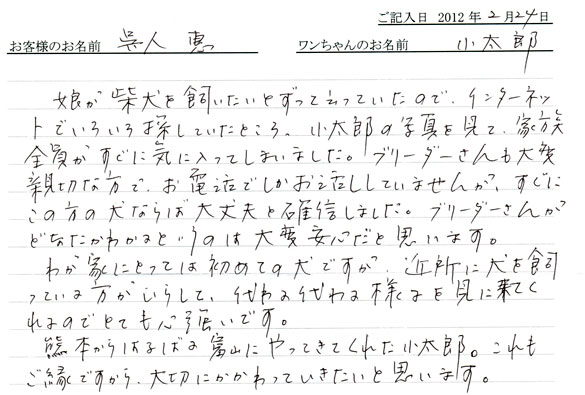 ご記入日 2012年2月24日
お客様のお名前 呉人 恵 ワンちゃんのお名前 小太郎
娘が柴犬を飼いたいとずっと言っていたので、インターネッ
トでいろいろ探していたところ、小太郎の写真を見て、家族
全員がすぐに気に入ってしまいました。ブリーダーさんも大変
親切な方で、お電話でしかお話ししていませんが、すぐに
この方の犬ならば大丈夫と確信しました。ブリーダーさんが
どなたかわかるというのは大変安心だと思います。
わが家にとっては初めての犬ですが、近所に犬を飼
っている方がいらして、代わる代わる様子を見に来てく
れるのでとても心強いです。
熊本からはるばる富山にやってきてくれた小太郎。これも
ご縁ですから、大切にかかわっていきたいと思います。